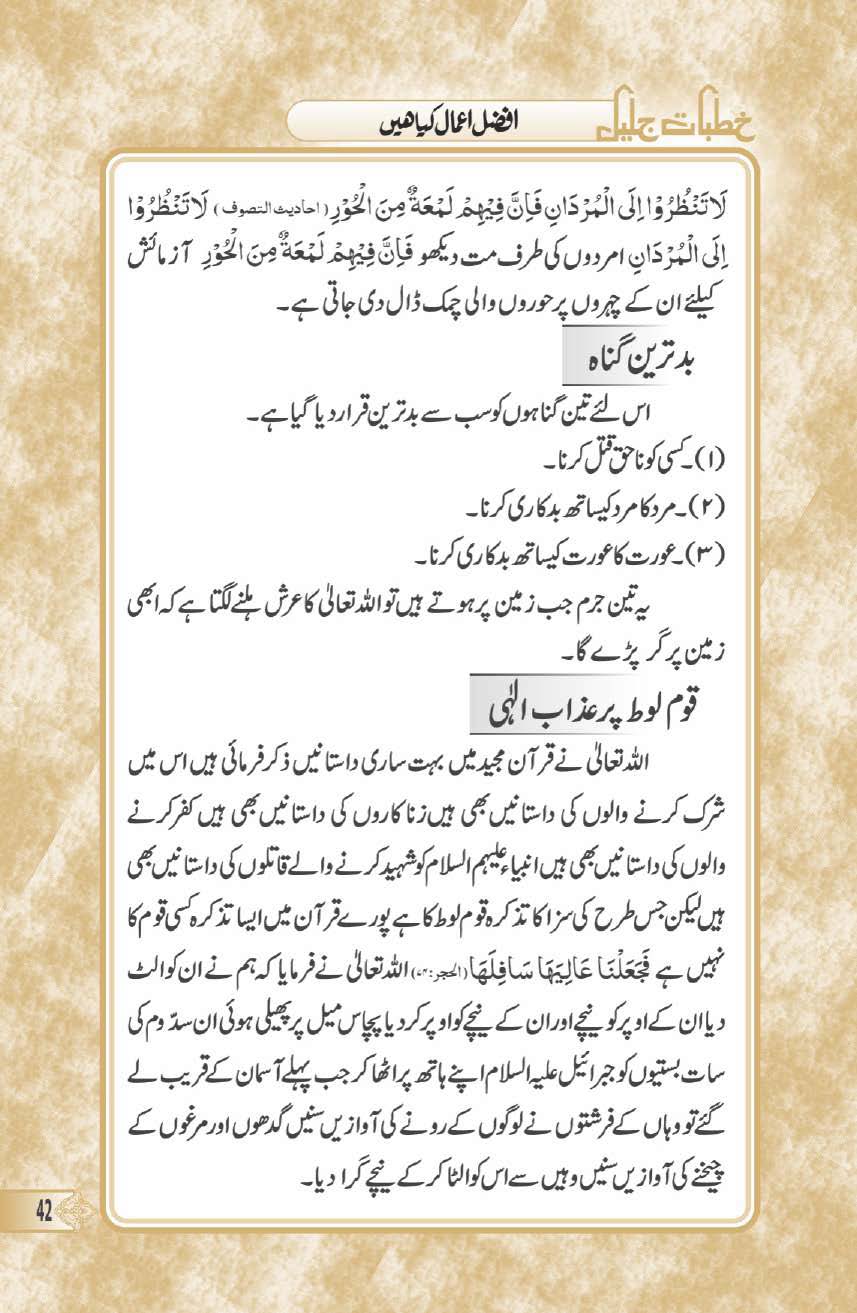 خطبات جلیل
افضل اعمال کیا ھیں
لَا تَنْظُرُوْا اِلَی الْمُرْدَانِ فَاِنَّ فِیْهِمْ لَمْعَةٌ مِنَ الْحُوْرِ (احادیث التصوف) لَا تَنْظُرُوْا
اِلَی الْمُرْدَانِ امردوں کی طرف مت دیکھو فَاِنَّ فِیْهِمْ لَمْعَةٌ مِنَ الْحُوْرِ آزمائش
کیلئے ان کے چہروں پر حوروں والی چمک ڈال دی جاتی ہے۔
بدترین گناہ
اس لئے تین گناہوں کو سب سے بدترین قرار دیا گیا ہے۔
(۱)۔کسی کو ناحق قتل کرنا۔
(۲)۔مرد کا مرد کیساتھ بدکاری کرنا۔
(۳)۔عورت کا عورت کیساتھ بدکاری کرنا۔
یہ تین جرم جب زمین پر ہوتے ہیں تو اللہ تعالیٰ کا عرش ہلنے لگتا ہے کہ ابھی
زمین پر گر پڑے گا۔
قوم لوط پر عذاب الٰہی
اللہ تعالیٰ نے قرآن مجید میں بہت ساری داستانیں ذکر فرمائی ہیں اس میں
شرک کرنے والوں کی داستانیں بھی ہیں زناکاروں کی داستانیں بھی ہیں کفر کرنے
والوں کی داستانیں بھی ہیں انبیاء علیہم السلام کو شہید کرنے والے قاتلوں کی داستانیں بھی
ہیں لیکن جس طرح کی سزا کا تذکرہ قوم لوط کا ہے پورے قرآن میں ایسا تذکرہ کسی قوم کا
نہیں ہے فَجَعَلْنَا عَالِيَهَا سَافِلَهَا (الحجر:۷۴) اللہ تعالیٰ نے فرمایا کہ ہم نے ان کو الٹ
دیا ان کے اوپر کو نیچے اور ان کے نیچے کو اوپر کر دیا پچاس میل پر پھیلی ہوئی ان سدّوم کی
سات بستیوں کو جبرائیل علیہ السلام اپنے ہاتھ پر اٹھا کر جب پہلے آسمان کے قریب لے
گئے تو وہاں کے فرشتوں نے لوگوں کے رونے کی آوازیں سنیں گدھوں اور مرغوں کے
چیخنے کی آوازیں سنیں وہیں سے اس کو الٹا کر کے نیچے گرا دیا۔
42